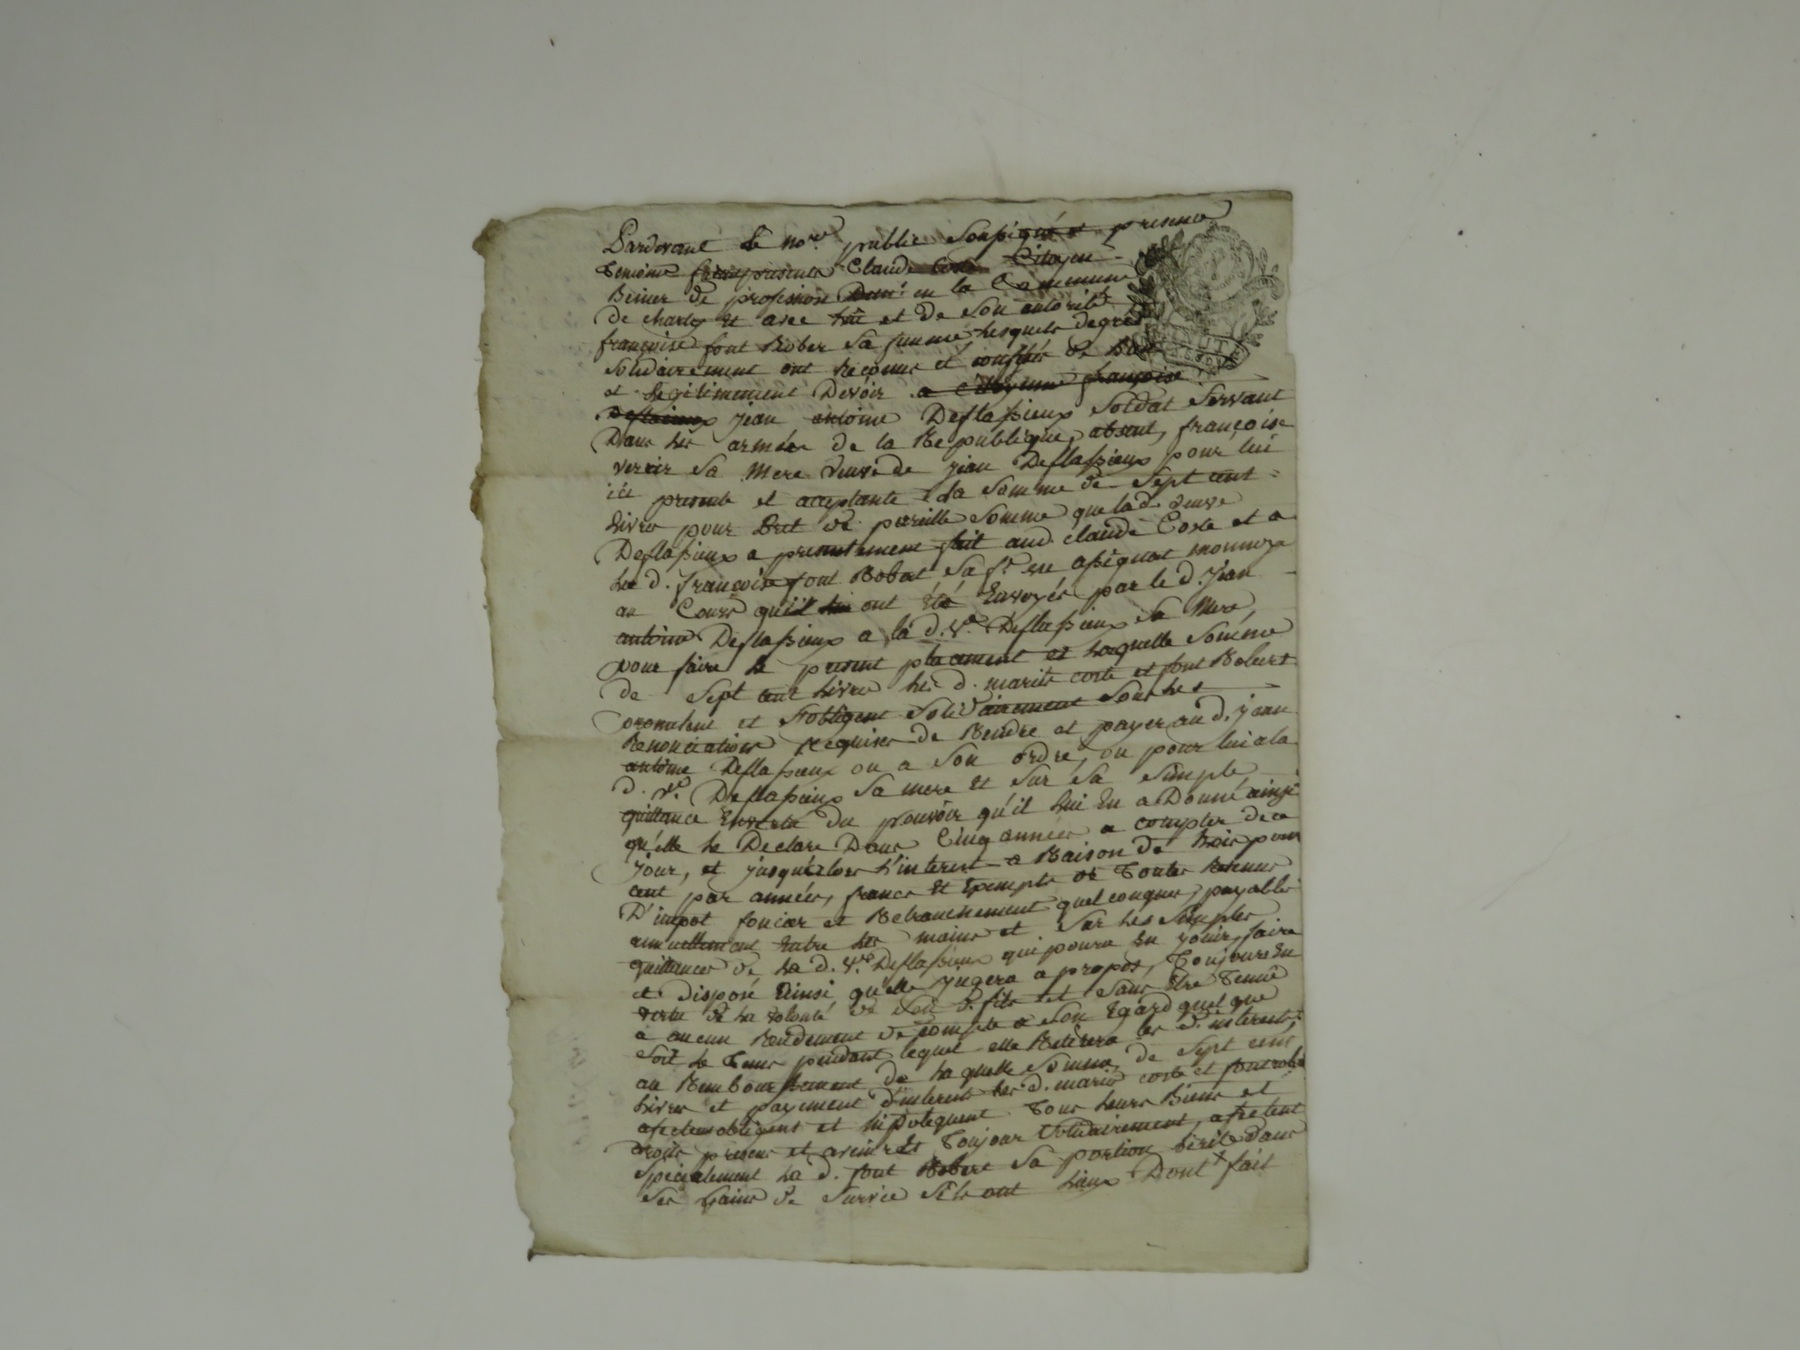 Pardevant le no.re public soussigné et presence
temoins furent presents Claude Coste Citoyen
de profession Dem.t en la Commune
de charly et avec lui et de son autorité
françoise font Rober sa femme lesquels de gré
solidairement ont reconnus et confessés de Bien
et legitimement Devoir a Citoyenne françoise
Deflassieux jean antoine Deflassieux soldat servant
Dans les armées de la Republique, absent, françoise
verrir sa mere veuve de jean Deflassieux pour lui
ici presente et acceptante la somme de sept cent
livres pour Pret de pareille somme que lad. veuve
Deflassieux a presentement fait aud. claude Coste et a
la d. françoise font Robert sa f.e en assignat monnoye
au Cours qu'il lui ont été Envoyés par le d. jean
antoine Deflassieux a la d. v.e Deflassieux sa Mere,
pour faire le present placement et laquelle somme
de sept cent livres les d. mariés coste et font Robert
promettent et s'obligent solidairement sous les
Renonciations requises de Rendre et payer au d. jean
antoine Deflassieux ou a son ordre, ou pour lui a la
d. v.e Deflassieux sa mere et sur sa simple
quittance En vertu du pouvoir qu'il lui En a Donné ainsi
qu'elle le Declare Dans Cinq années a compter de ce
jour, et jusqu'alors l'interest a Raison de trois pour
cent par années, francs et Exempts de Toutes Retenues
D'impot foncier et Retranchement quelconques, payables
annuellement Entre les mains et sur les simples
quittances de la d. v.e Deflassieux qui poura En jouir, faire
et disposé Ainsi qu'elle jugera a propos, Toujours En
vertu de la volonté de son d. fils et sans Etre Tenue
à aucun Rendement de compte a son Egard quel que
soit le Tems pendant lequel elle Retirera les d. interests,
au Remboursement de laquelle somme de sept cent
livres et payement d'interests les d. mariés coste et font robert
obligent et hipotequent Tous leurs Biens et
droits presens et avenirs Toujour solidairement, affectent
specialement la d. font Robert sa portion virile dans
ses gains de survie s'ils ont lieux Dont fait